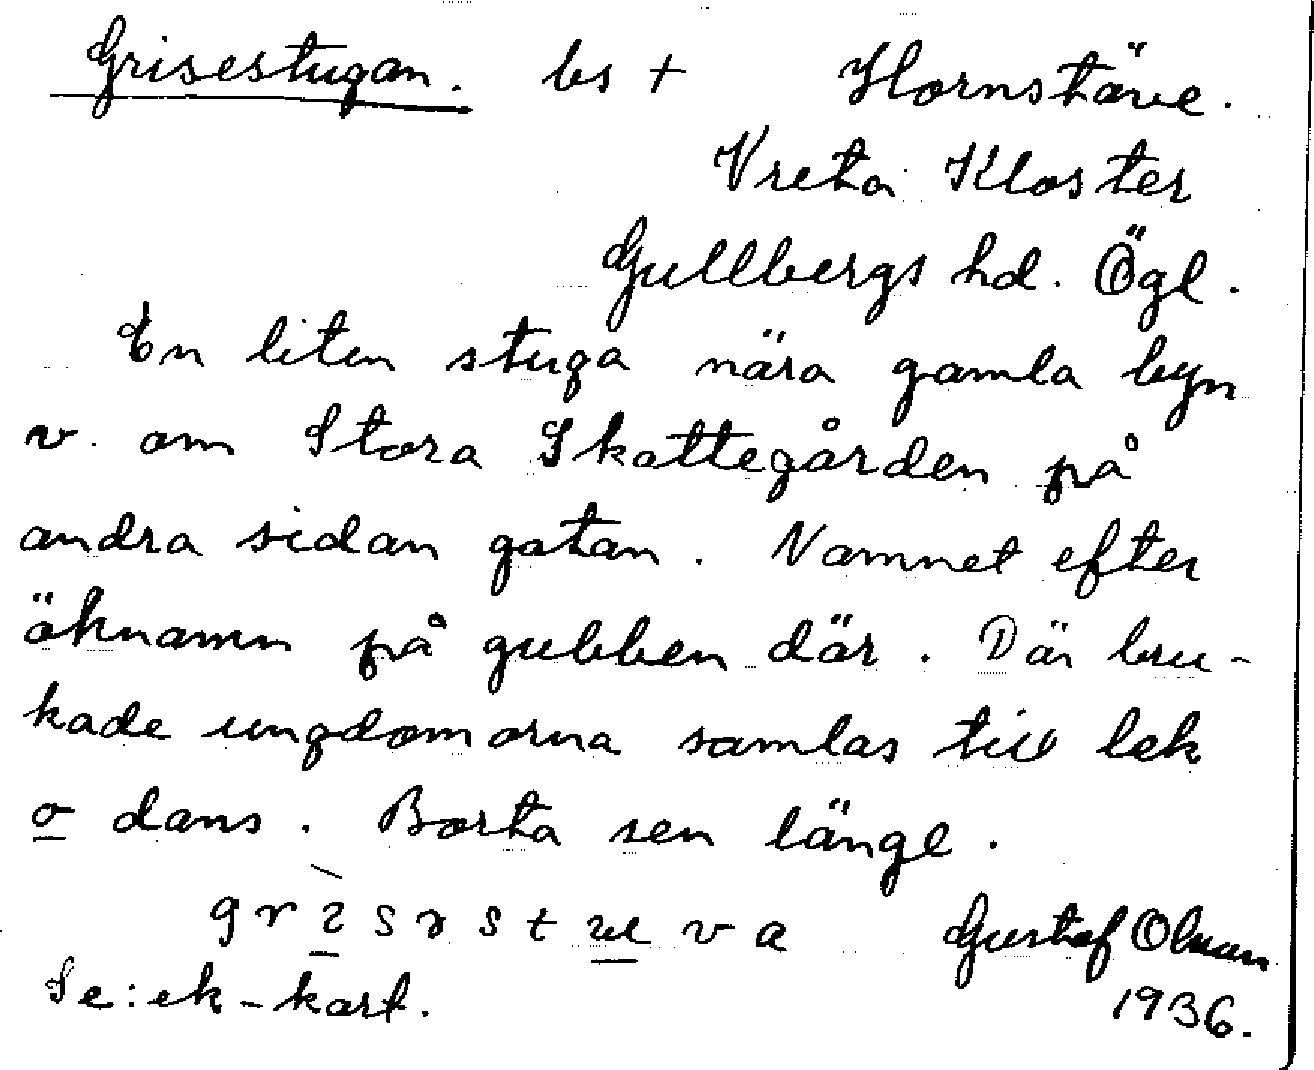 Grisestugan. bs + Hornstäve.
Vreta Kloster
Gullbergs hd. Ögl.
En liten stuga nära gamla byn
v. om Stora Skattegården på
andra sidan gatan. Namnet efter
öknamn på gubben där. Där bru-
kade ungdomorna samlas till lek
o dans. Borta sen länge.
Gustaf Olsson
Se: ek-kart.
1936.